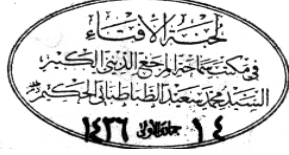 لجنة الافتاء
في مكتب سماحة المرجع الديني الكبير
السيد محمد سعيد الطباطبائي الحكيم
١٤ جمادى الاولى ١٤٣٦